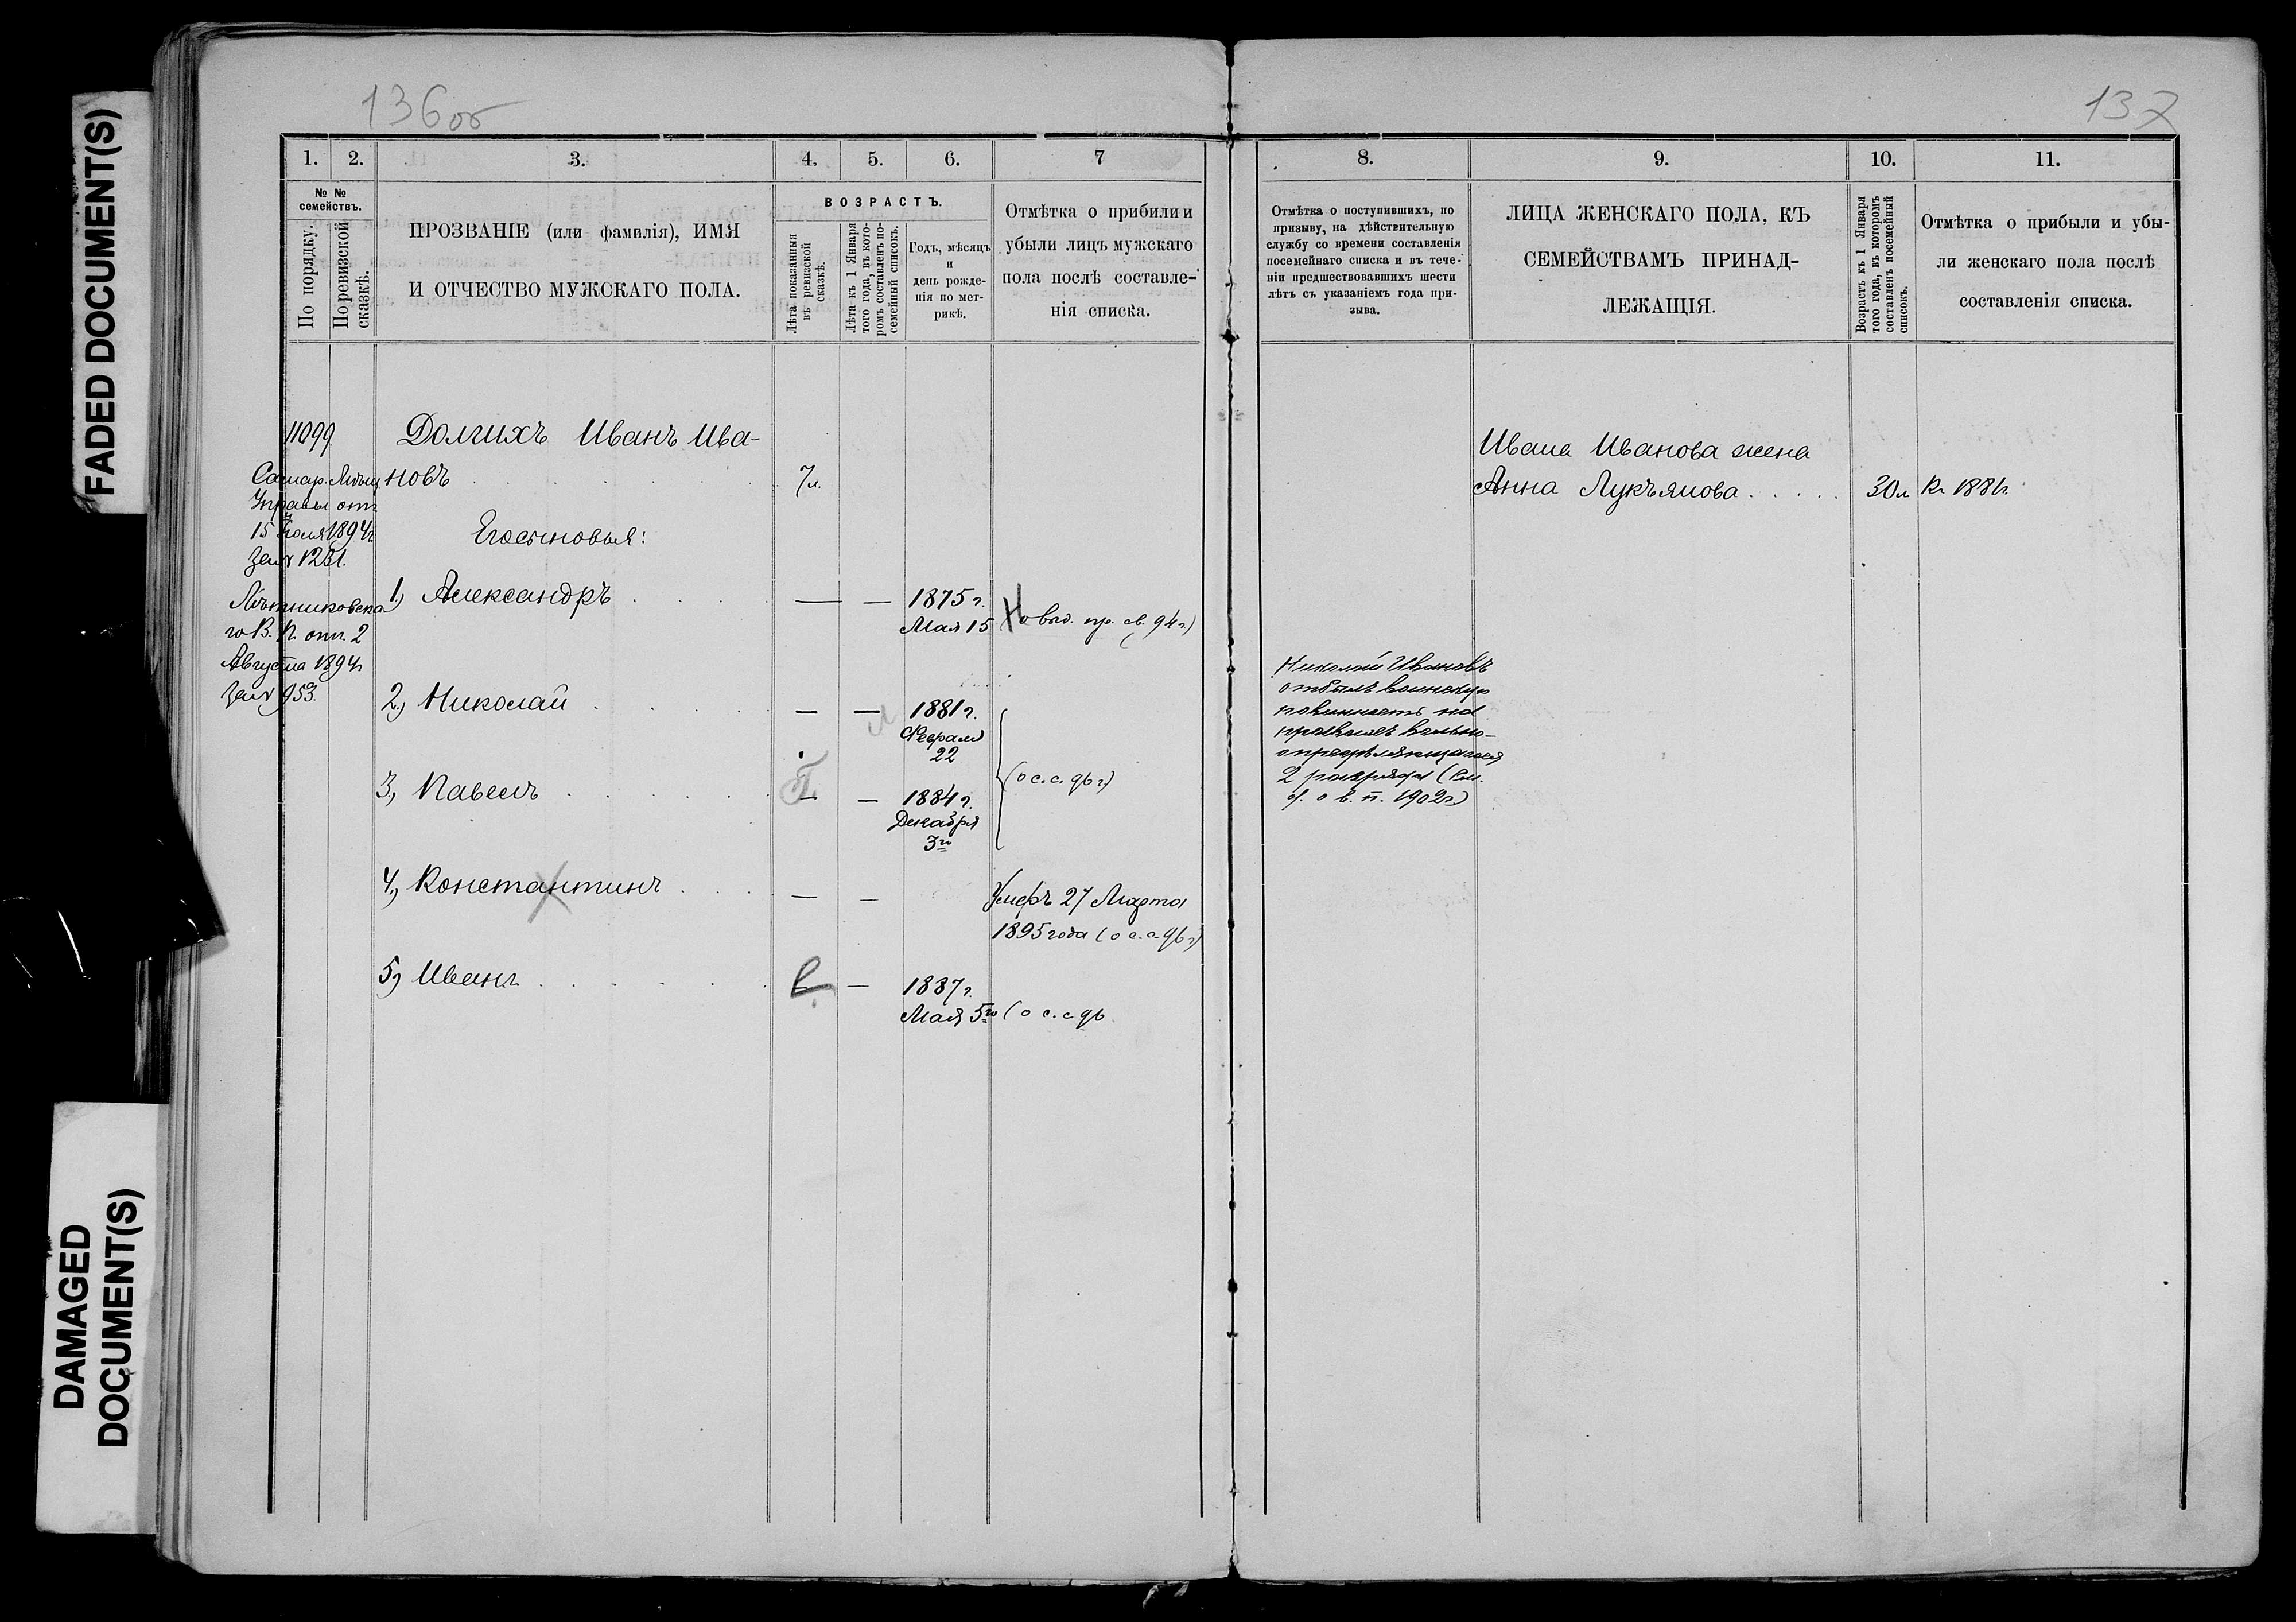 FADED DOCUMENT(S)
DAMAGED
DOCUMENT(S)
136об
1.
2.
3.
4.
5.
6.
7
№ №
семействъ.
По порядку.
По ревизской
сказкѣ.
ПРОЗВАНІЕ (или фамилія), ИМЯ
И ОТЧЕСТВО МУЖСКАГО ПОЛА.
ВОЗРАСТЪ.
Лѣта показанныя
въ ревизской
сказкѣ.
Лѣта къ 1 Января
того года, въ кото-
ромъ составленъ по-
семейный списокъ.
Годъ, мѣсяцъ
и
день рожде-
нія по мет-
рикѣ.
Отмѣтка о прибыли и
убыли лицъ мужскаго
пола послѣ составле-
нія списка.
11099
Долгихъ Иванъ Ива-
новъ
7л.
Самар. Мѣщ
Управы отъ
15 Іюля 1894г
за № 1231.
Лѣтниковска
го В. П. отъ 2
Августа 1894г
за № 953.
Его сыновья:
1) Александръ
1875 г.
Мая 15
(о выд. пр. св. 94 г.)
2) Николай
1881 г.
Февраля
22
3) Павелъ
1884 г.
Декабря
3го
(о с. с. 96 г)
4) Константинъ
Умеръ 27 Марта
1895 года (о с. с 96 г)
5) Иванъ
1887 г.
Мая 5го
(о с. с 96
137
8.
9.
10.
11.
Отмѣтка о поступившихъ, по
призыву, на дѣйствительную
службу со времени составленія
посемейнаго списка и въ тече-
ніи предшествовавшихъ шести
лѣтъ съ указаніемъ года при-
зыва.
ЛИЦА ЖЕНСКАГО ПОЛА, КЪ
СЕМЕЙСТВАМЪ ПРИНАД-
ЛЕЖАЩІЯ.
Возрастъ къ 1 Января
того года, въ которомъ
составленъ посемейный
списокъ.
Отмѣтка о прибыли и убы-
ли женскаго пола послѣ
составленія списка.
Ивана Иванова жена
Анна Лукъянова
30л
къ 1881г.
Николай Ивановъ
отбылъ воинскую
повинность на
правахъ вольно-
опредѣляющагося
2 разряда (см.
д. о в. п. 1902г)